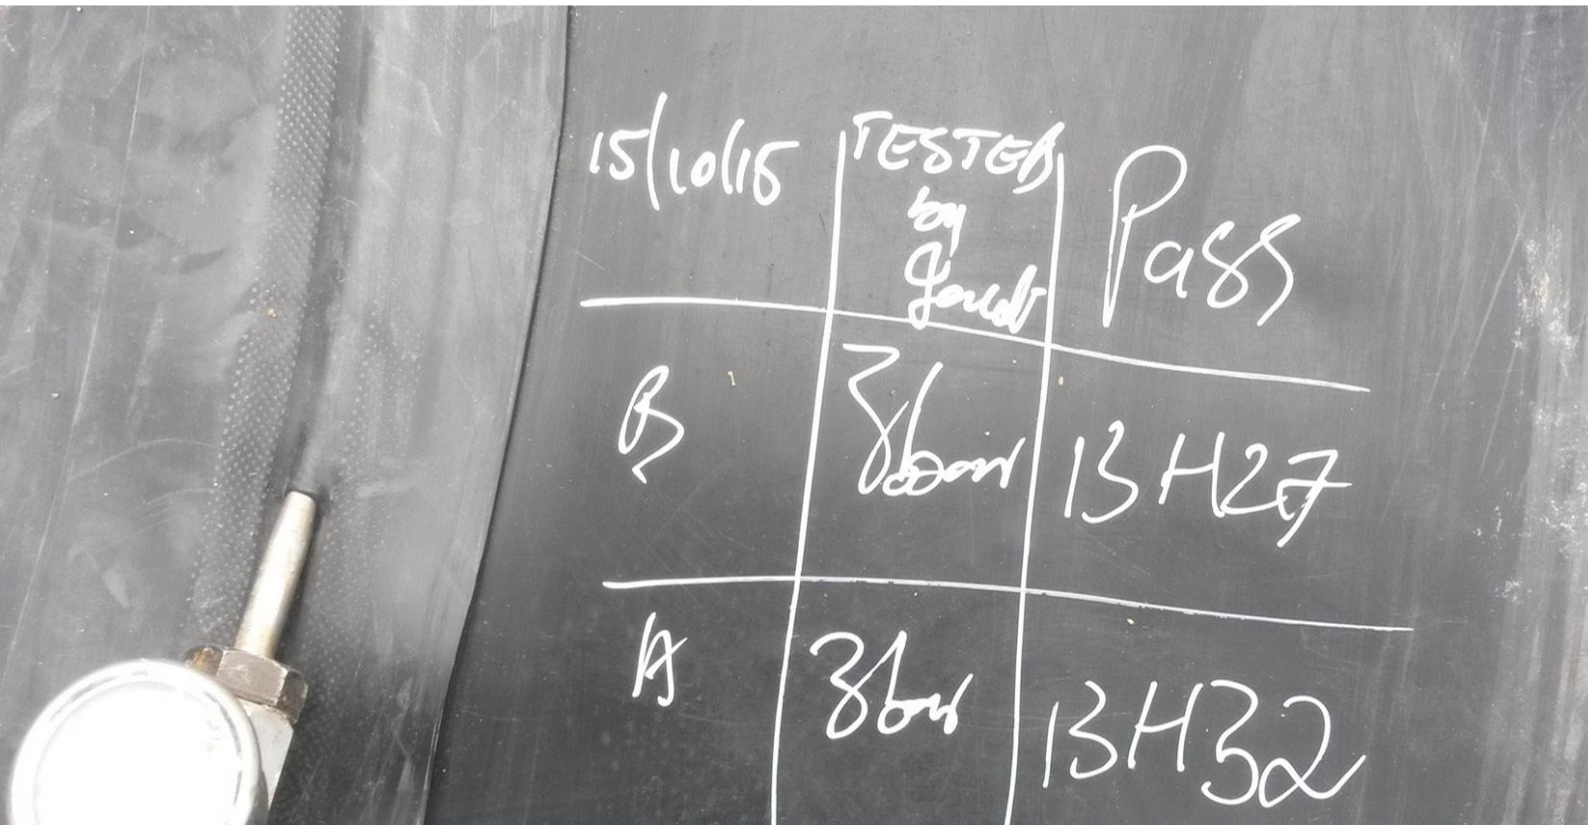 15/10/15
TESTED
by
Pass
B
3bar
13H27
A
3bar
13H32